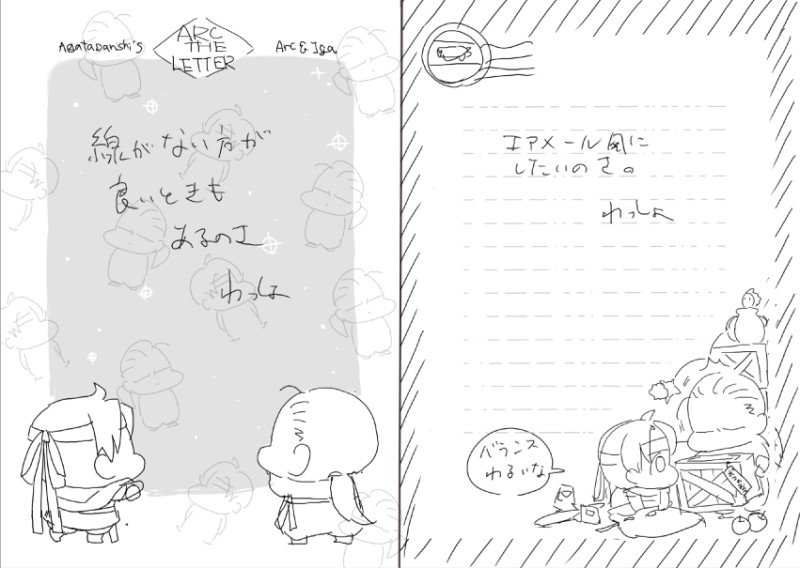 ArataDanshi's
ARC
THE
LETTER
Arc & Iga
線がない方が
良いときも
あるのさ
わっしょ
エアメール風に
したいのさ。
わっしょ
バランス
わるいな